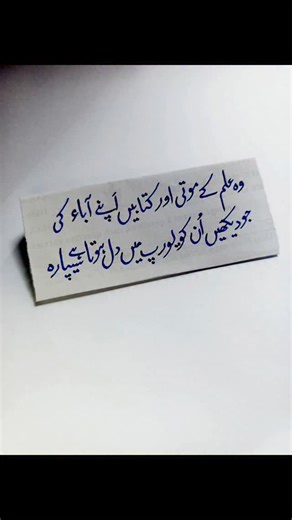 وہ علم کے موتی اور کتابیں اَپنے آباء کی
جو دیکھیں اُن کو یورپ میں دل ہوتا ہے سیپارہ